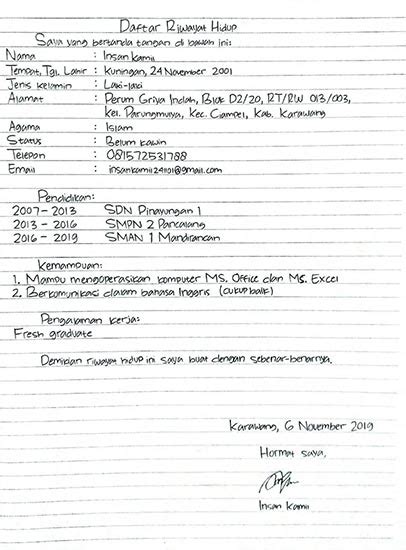 Daftar Riwayat Hidup
Saya yang bertanda tangan di bawah ini:
Nama : Insan Kamil
Tempat, Tgl. Lahir : Kuningan, 24 November 2001
Jenis Kelamin : Laki-laki
Alamat : Perum Griya Indah, Blok D2/20, RT/RW 013/003,
Kel. Parungmulya, Kec. Ciampel, Kab. Karawang
Agama : Islam
Status : Belum Kawin
Telepon : 081572531788
Email : insankamil241101@gmail.com
Pendidikan:
2007 - 2013 SDN Pinayungan 1
2013 - 2016 SMPN 2 Pancalang
2016 - 2019 SMAN 1 Mandirancan
Kemampuan:
1. Mampu mengoperasikan komputer MS. Office dan MS. Excel
2. Berkomunikasi dalam bahasa Inggris (cukup baik)
Pengalaman Kerja:
Fresh graduate
Demikian riwayat hidup ini saya buat dengan sebenar-benarnya.
Karawang, 6 November 2019
Hormat saya,
Insan Kamil